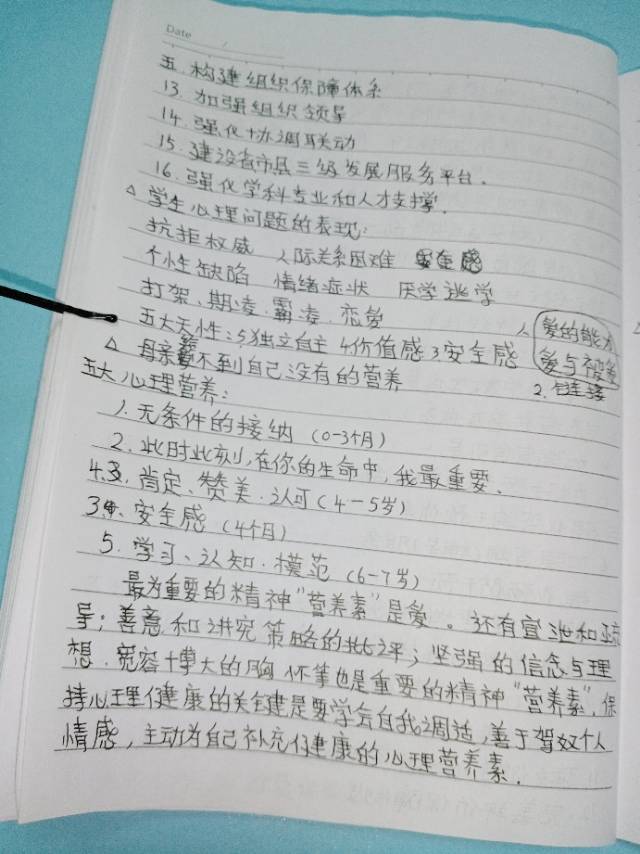 Date /
五. 构建组织保障体系
13. 加强组织领导
14. 强化协调联动
15. 建设省市县三级发展服务平台.
16. 强化学科专业和人才支撑.
△ 学生心理问题的表现:
抗拒权威 人际关系困难 安全感
个性缺陷 情绪症状 厌学逃学
打架、期凌. 霸凌. 恋爱
五大天性: 5独立自主 4价值感 3安全感 人 爱的能力
爱与被爱
△ 母亲给不到自己没有的营养 2. 连接
五大心理营养:
1. 无条件的接纳 (0-3个月)
2. 此时此刻,在你的生命中,我最重要.
4. 肯定、赞美. 认可 (4-5岁)
3. 安全感 (4个月)
5. 学习、认知. 模范 (6-7岁)
最为重要的精神"营养素"是爱。还有宣泄和疏
导; 善意和讲究策略的批评; 坚强的信念与理
想. 宽容博大的胸怀等也是重要的精神"营养素", 保
持心理健康的关键是要学会自我调适, 善于驾奴个人
情感, 主动为自己补充健康的心理营养素.